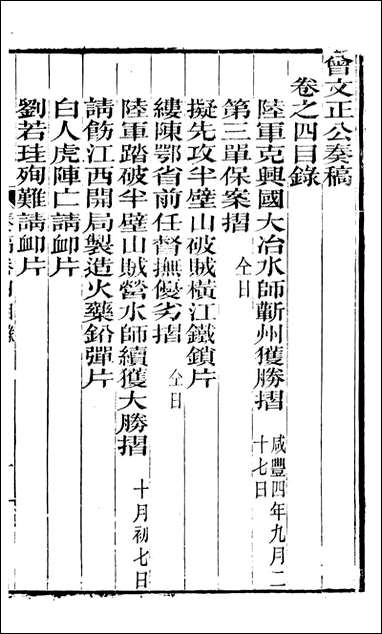 曾文正公奏稿
卷之四目錄
陸軍克興國大冶水師蘄州獲勝摺 咸豐四年九月二十七日
第三單保案摺 仝日
擬先攻半壁山破賊橫江鐵鎖片
縷陳鄂省前任督撫優劣摺 仝日
陸軍踏破半壁山賊營水師續獲大勝摺 十月初七日
請飭江西開局製造火藥鉛彈片
白人虎陣亡請卹片
劉若珪殉難請卹片